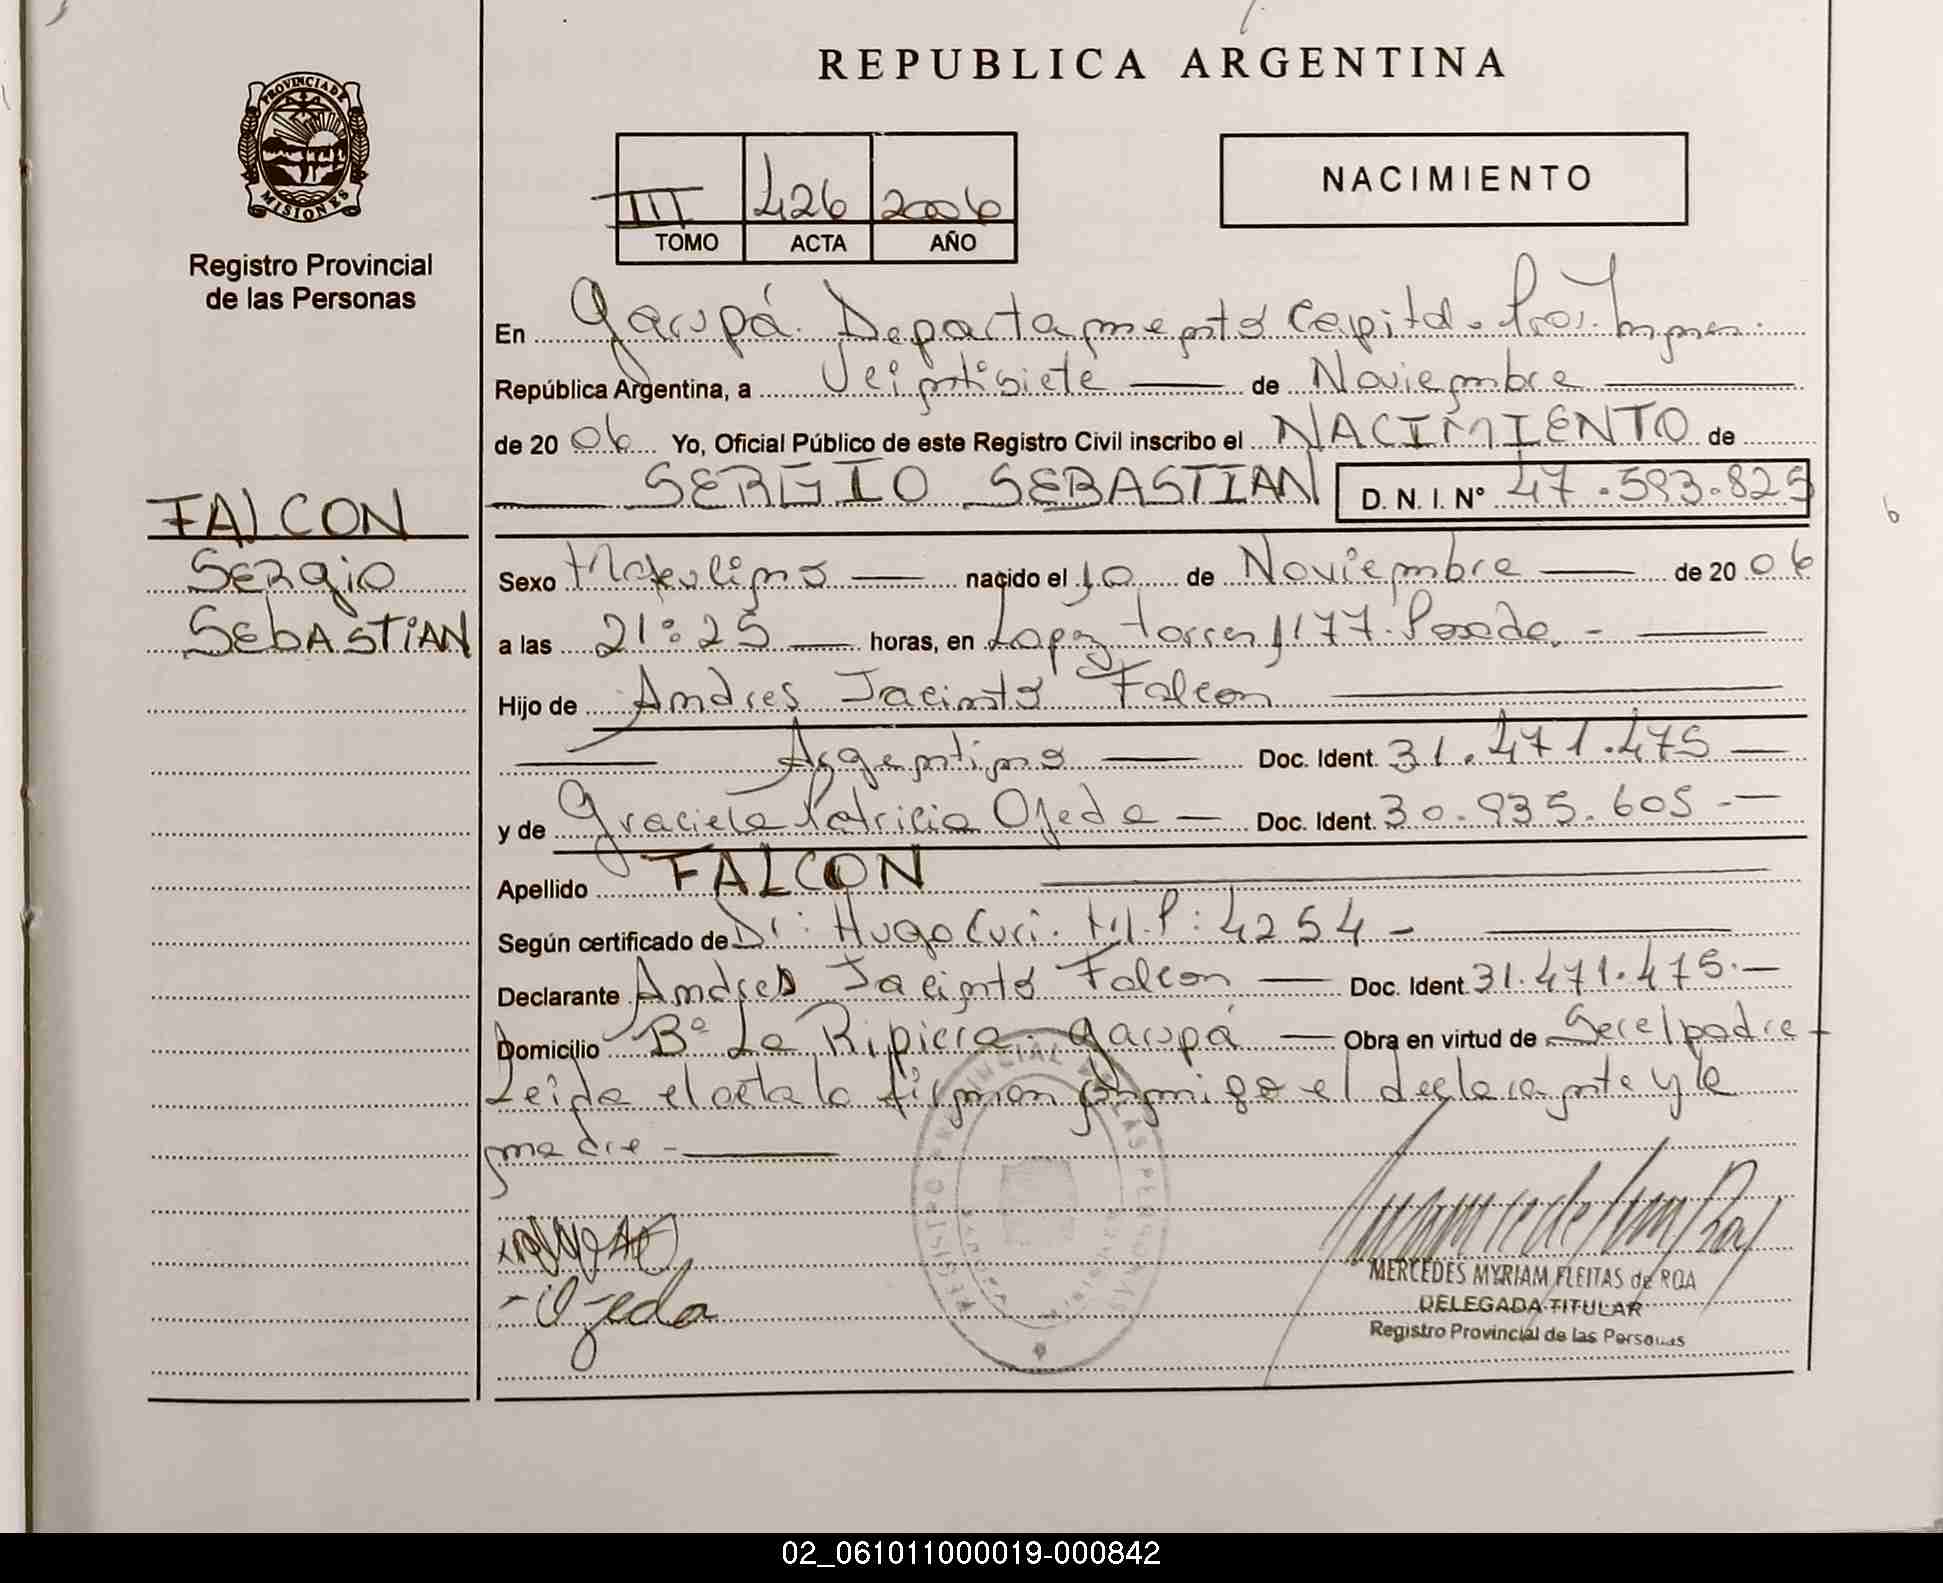 REPUBLICA ARGENTINA
PROVINCIA DE MISIONES
Registro Provincial
de las Personas
III 426 2006
TOMO ACTA AÑO
NACIMIENTO
En Garupá. Departamento Capital. Prov.
República Argentina, a Veintisiete de Noviembre
de 20 06 Yo, Oficial Público de este Registro Civil inscribo el NACIMIENTO de
SERGIO SEBASTIAN D. N. I. N° 47.593.825
FALCON
Sergio
SEbASTiAN
Sexo Masculino nacido el 10 de Noviembre de 20 06
a las 21:25 horas, en Lopez Torres 1177. Posadas.-
Hijo de Andres Jacinto Falcon
Argentino Doc. Ident. 31.471.475
y de Graciela Patricia Ojeda Doc. Ident. 30.935.605.-
Apellido FALCON
Según certificado de Dr: Hugo Curi. M.P: 4254-
Declarante Andres Jacinto Falcon Doc. Ident. 31.471.475.-
Domicilio B° La Ripiera. Garupá Obra en virtud de Ser el padre-
Leida el acta la firman conmigo el declarante y la
madre-
Ojeda
MERCEDES MYRIAM FLEITAS de ROA
DELEGADA TITULAR
Registro Provincial de las Personas
02_061011000019-000842